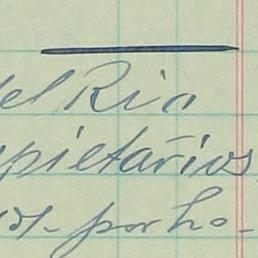 del Rio
pietarios
por ho-